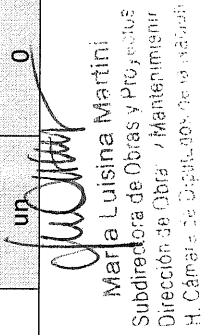 un
o
Mar a Luisina Martini
Subdirectora de Obras y Proyectos
Dirección de Obra y Mantenimien
H. Cámara de Diputados de la Nación